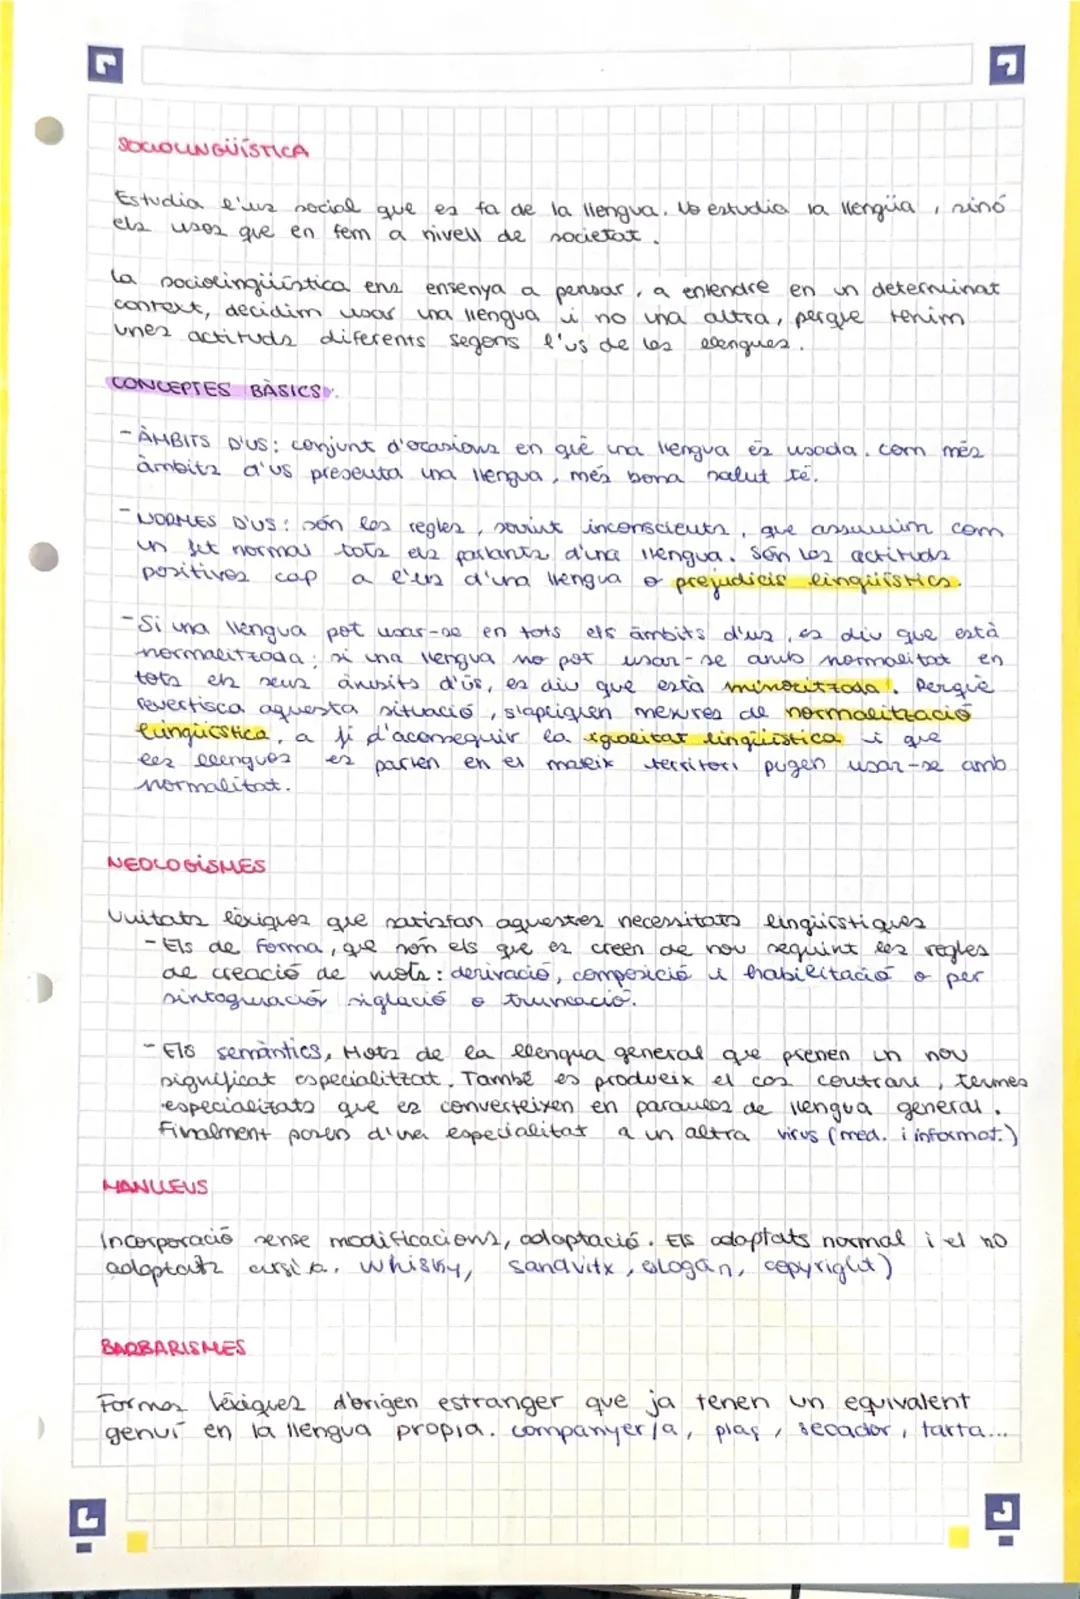 SOCIOLINGÜÍSTICA
Estudia l'us social que es fa de la llengua. No estudia la llengüa, sinó
els usos que en fem a nivell de societat.
La sociolingüística ens ensenya a pensar, a entendre en un determinat
context, decidim usar una llengua i no una altra, perque tenim
unes actituds diferents segons l'us de les llengues.
CONCEPTES BÀSICS:
- ÀMBITS D'US: conjunt d'ocasions en què una llengua és usada. Com més
àmbits d'us presenta una llengua, més bona salut té.
- NORMES D'US: són les regles, sovint inconscients, que assumim com
un fet normal tots els parlants d'una llengua. Són les actituds
positives cap a l'us d'una llengua o prejudicis lingüístics.
- Si una llengua pot usar-se en tots els àmbits d'us, es diu que està
normalitzada; si una llengua no pot usar-se amb normalitat en
tots els seus àmbits d'ús, es diu que està minoritzada. Perquè
revertisca aquesta situació, s'apliquen mesures de normalització
lingüística, a fi d'aconseguir la igualitat lingüística i que
les llengues es parlen en el mateix territori pugen usar-se amb
normalitat.
NEOLOGISMES
Unitats lèxiques que satisfan aquestes necessitats lingüístiques
- Els de forma, que són els que es creen de nou seguint les regles
de creació de mots: derivació, composició i habilitació o per
sintagmació siglació o truncació.
- Els semàntics, Mots de la llengua general que prenen un nou
significat especialitzat. També es produeix el cas contrari, termes
especialitats que es converteixen en paraules de llengua general.
Finalment pasen d'una especialitat a un altra virus (med. i informat.)
MANLLEUS
Incorporació sense modificacions, adaptació. Els adaptats normal i el no
adaptats cursiva. Whisky, sandvitx, eslogan, copyright)
BARBARISMES
Formes lèxiques d'origen estranger que ja tenen un equivalent
genuí en la llengua propia. companyer/a, plaç, secador, tarta...